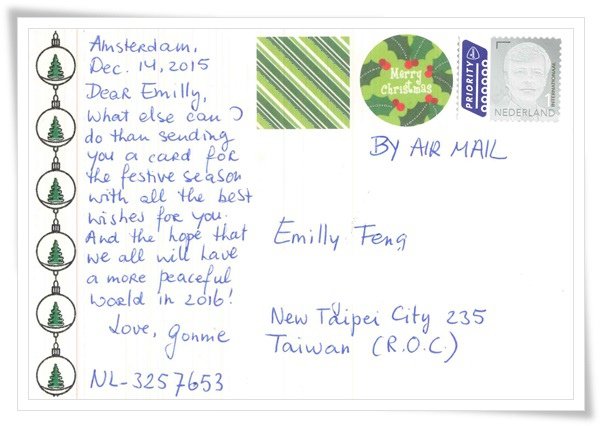 Amsterdam,
Dec. 14, 2015
Dear Emilly,
what else can I
do than sending
you a card for
the festive season
with all the best
wishes for you.
And the hope that
we all will have
a more peaceful
world in 2016!
Love, Gonnie
NL-3257653
Merry
Christmas
PRIORITY
INTERNATIONAAL
NEDERLAND
BY AIR MAIL
Emilly Feng
New Taipei City 235
Taiwan (R.O.C.)